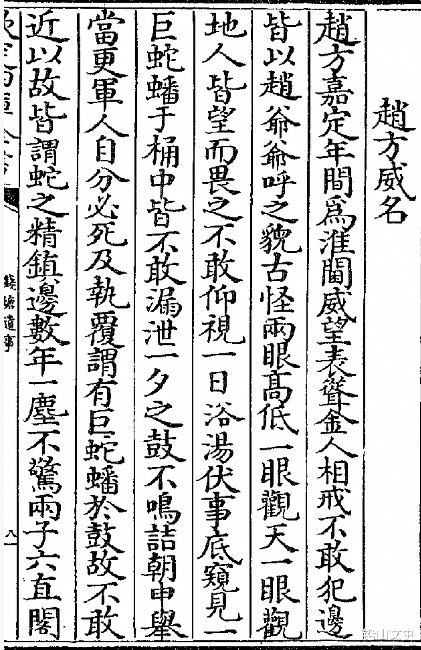 趙方威名
趙方嘉定年間爲淮閫威望表聳金人相戒不敢犯邊
皆以趙爺爺呼之貌古怪兩眼髙低一眼觀天一眼觀
地人皆望而畏之不敢仰視一日浴湯伏事底窺見一
巨蛇蟠于桶中皆不敢漏泄一夕之鼓不鳴詰朝申舉
當更軍人自分必死及執覆謂有巨蛇蟠於鼓故不敢
近以故皆謂蛇之精鎮邊數年一塵不驚兩子六直閣
錢塘遺事
八